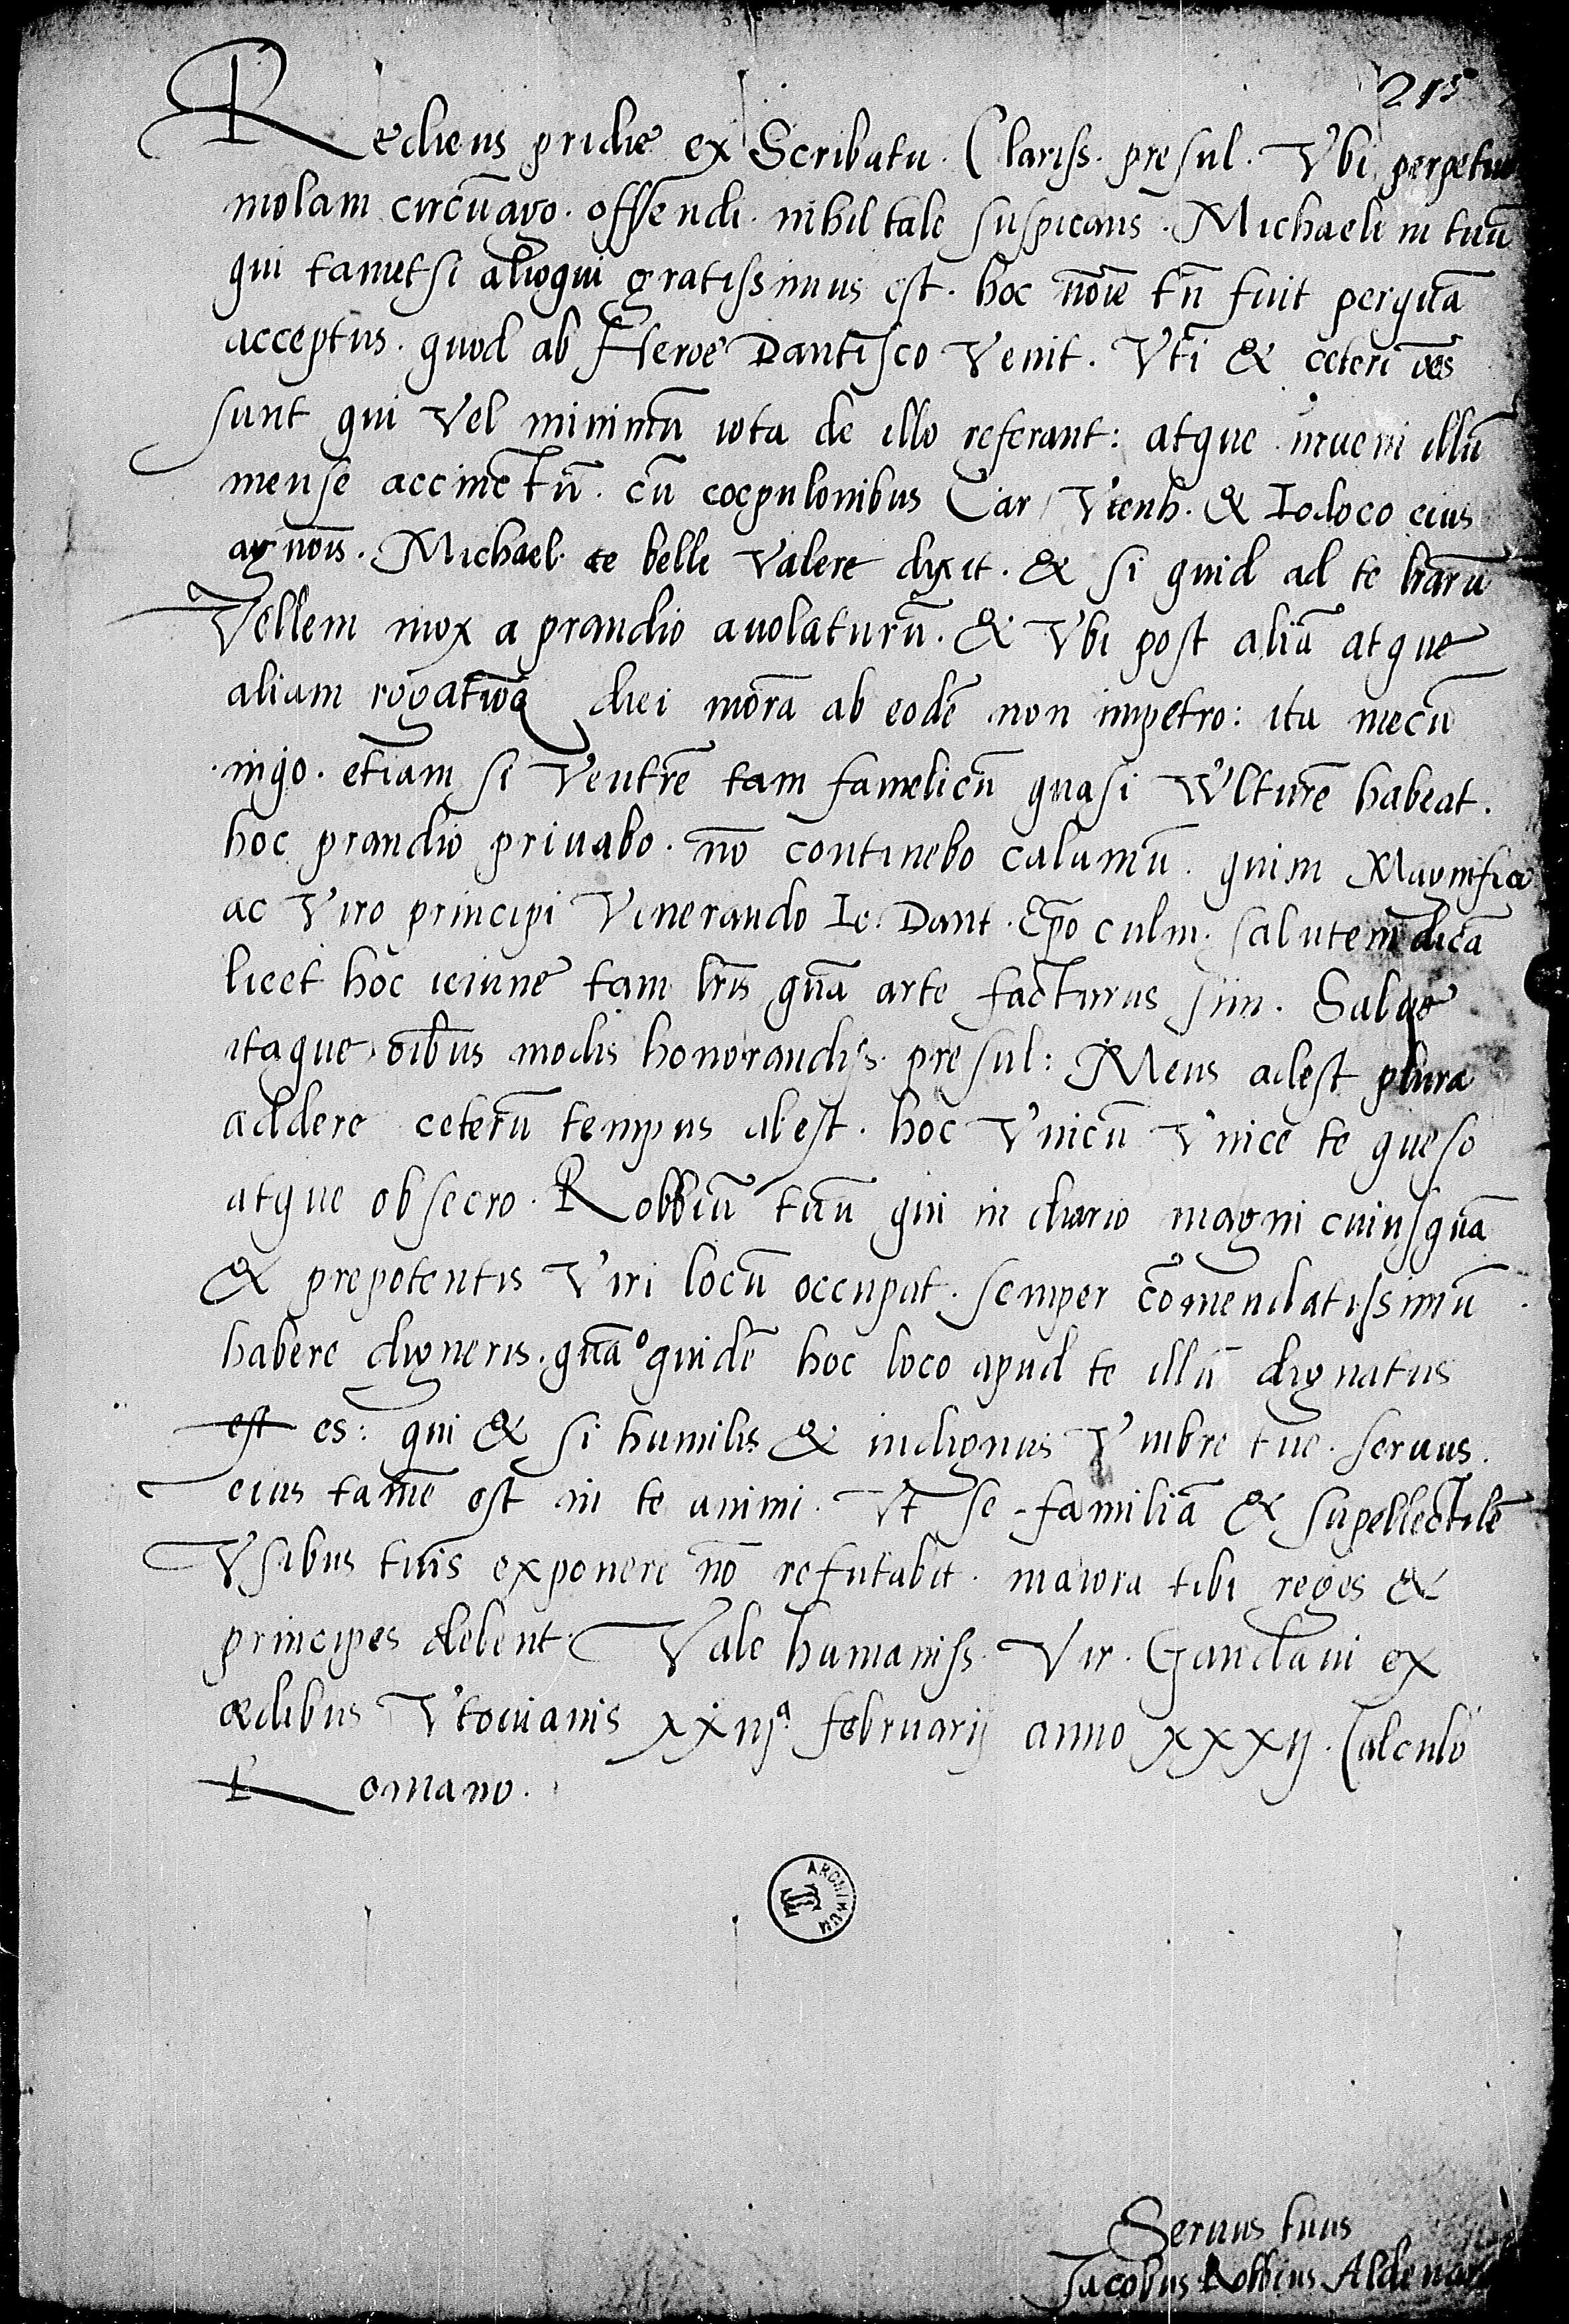 215
Rediens pridie ex Scribatu. Clariss. presul. Vbi perpetuo
molam circūago. offendi. nihil tale suspicans. Michaelem tuū
qui tametsi alioqui gratissimus est. hoc noīe tn̄ fuit perquā
acceptus. quod ab Heroe Dantisco Venit. Vti & ceteri oēs
sunt qui Vel minimū iota de illo referant: atque inueni illū
mense accinctū. cū coepulonibus Car Vtenh. & Iodoco eius
agnoīs. Michael te belle Valere dixit. & si quid ad te lr̄arū
Vellem mox a prandio auolaturū. & Vbi post aliā atque
aliam rogatioē diei morā ab eodē non impetro: ita mecū
inio. etiam si Ventrē tam famelicū quasi Vulturē habeat.
hoc prandio priuabo. nō continebo calamū. quin Magnifico
ac Viro principi Venerando Io. Dant. Ep̄o culm. salutem dicā
licet hoc ieiune tam lr̄is quā arte facturus sim. Salue
itaque oībus modis honorandiss. presul: Mens adest plura
addere ceterū tempus abest. hoc Vnicū Vnice te queso
atque obsecro. Robbiū tuū qui in diario magni cuiusquā
& prepotentis Viri locū occupat. semper cōmendatissimū
habere digneris. quā quidē hoc loco apud te illū dignatus
est es: qui & si humilis & indignus Vmbre tue. seruus.
eius tamē est in te animi. Vt se familiā & supellectilē
Vsibus tuis exponere nō refutabit. maiora tibi reges &
principes debent. Vale humaniss. Vir. Gandaui ex
ædibus Vtouianis xxiijª. februarij anno xxxij. Calculo
Romano.
ARCHIVUM
Seruus tuus
Jacobus Robbius Aldenar